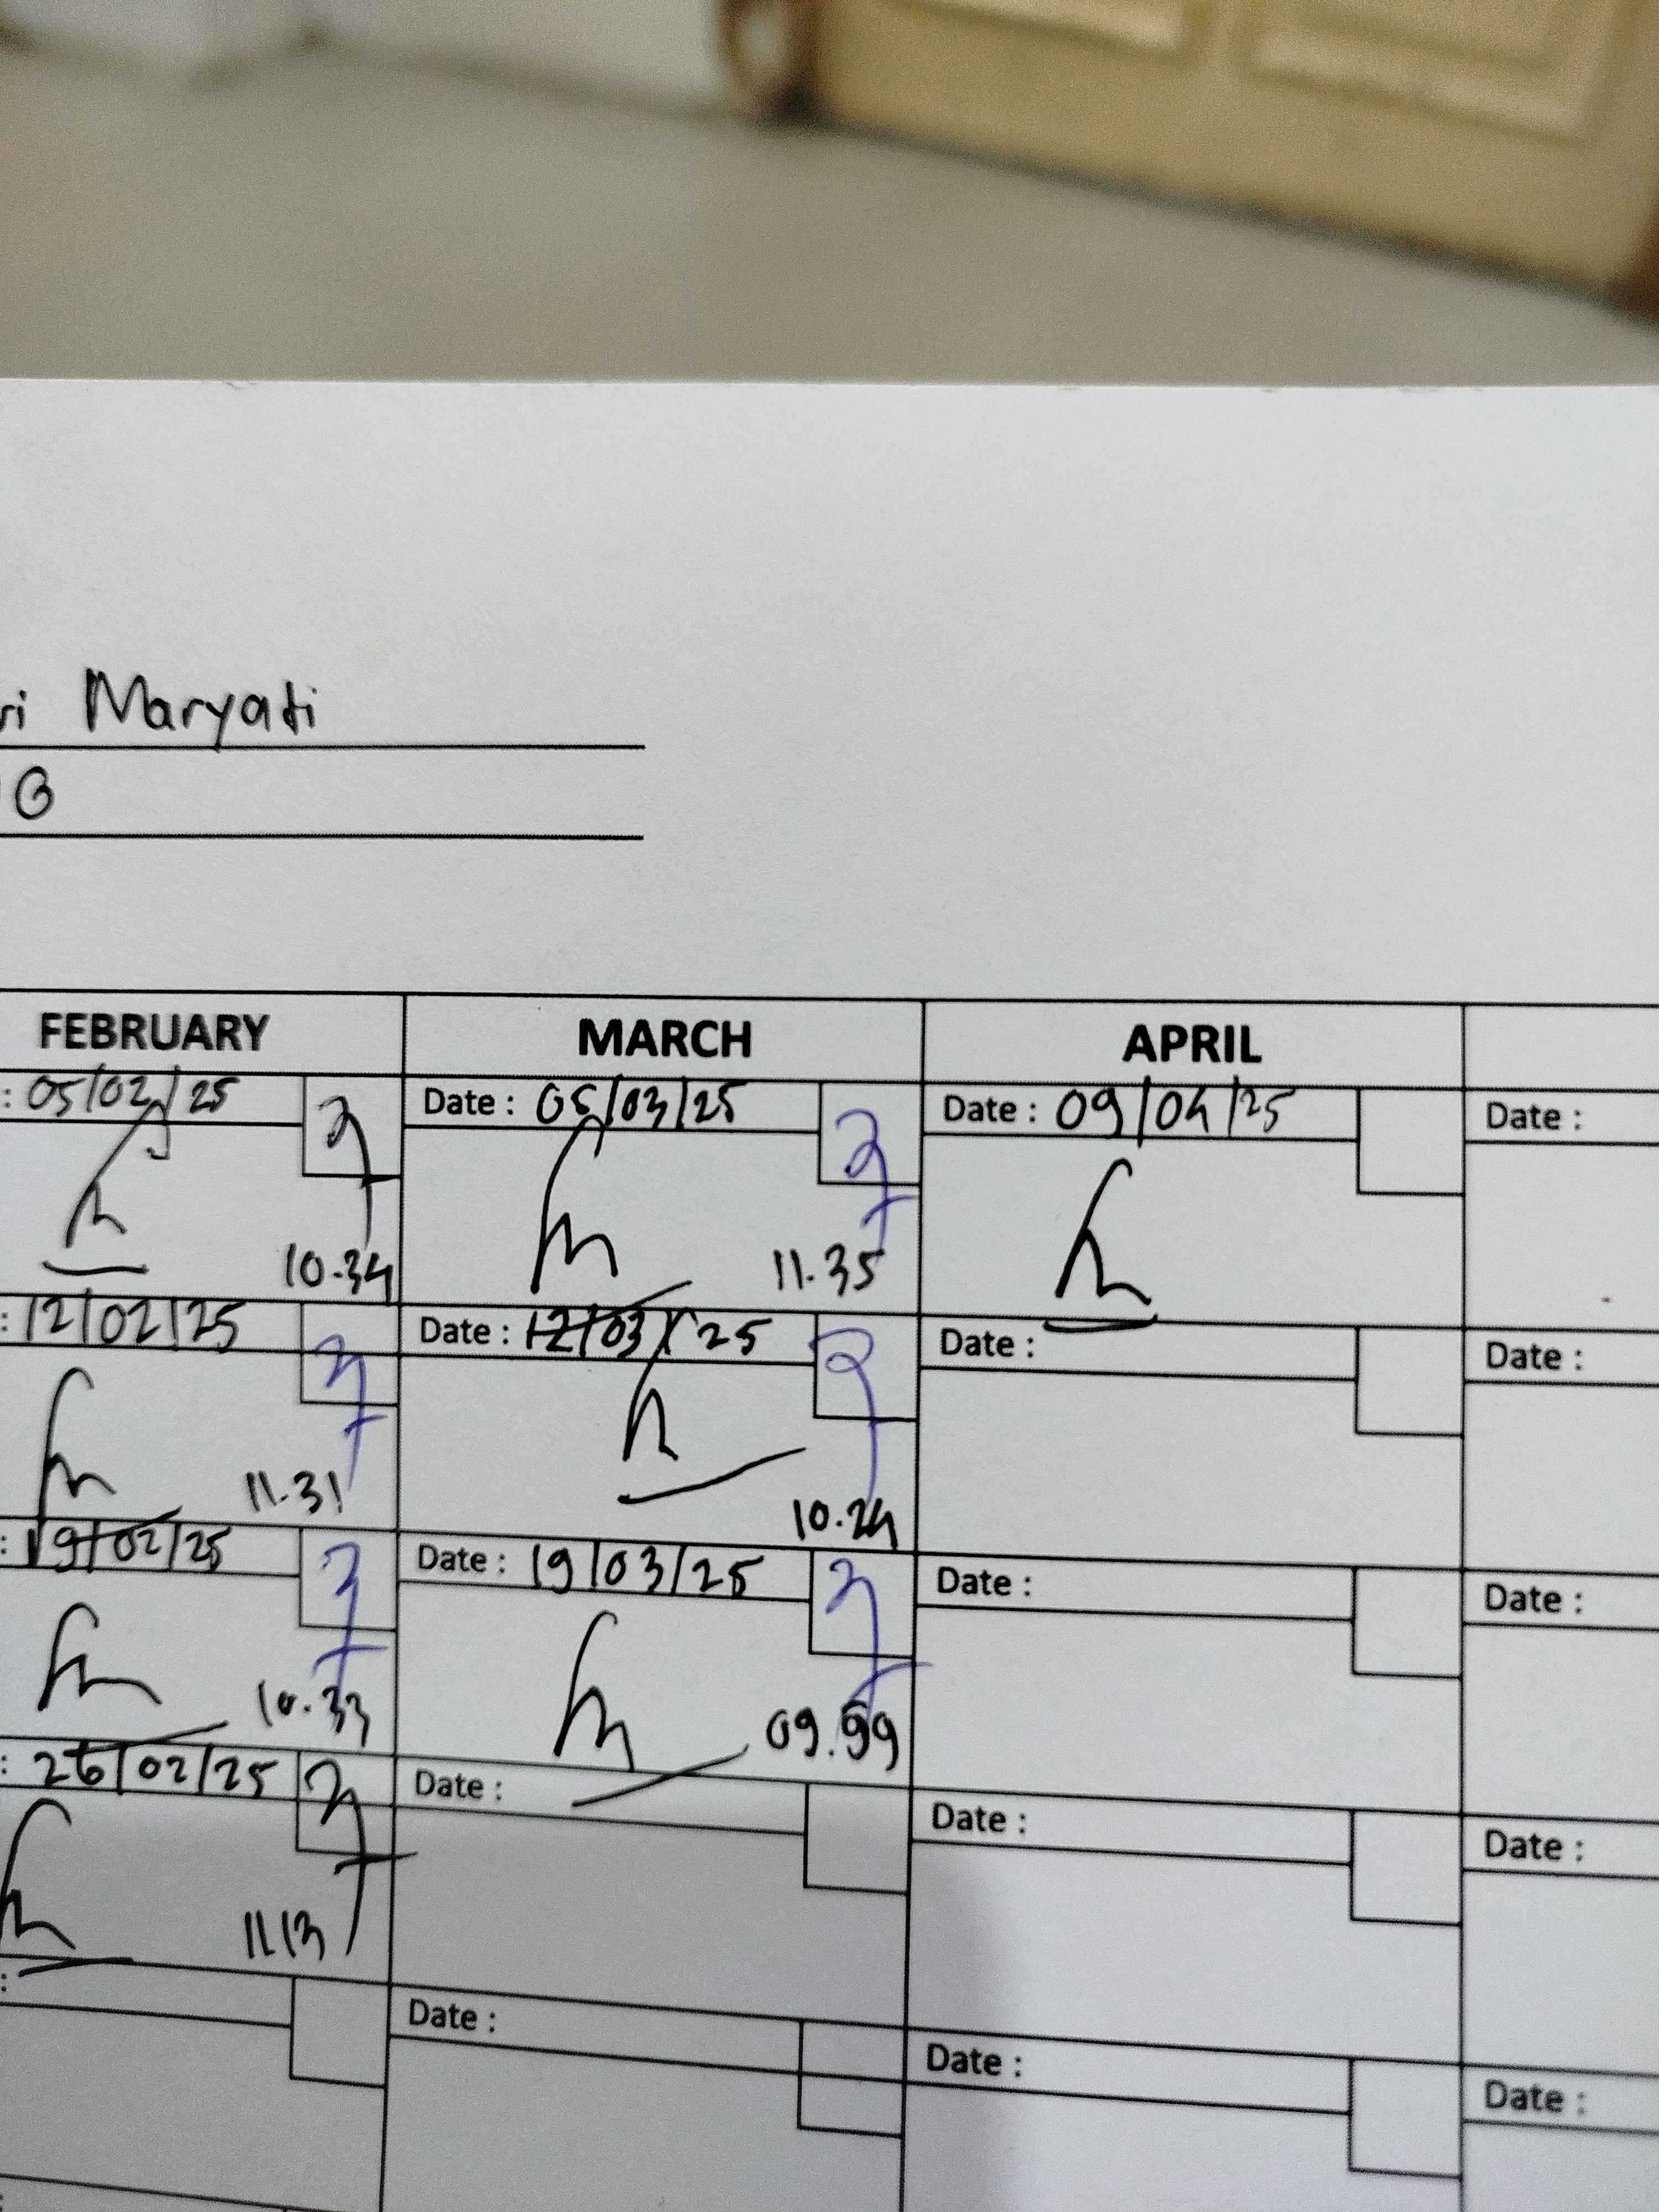 ri Maryati
B
FEBRUARY MARCH APRIL
: 05/02/25 Date : 05/03/25 Date : 09/04/25 Date :
10.34 11.35
: 12/02/25 Date : 12/03/25 Date : Date :
11.31 10.24
: 19/02/25 Date : 19/03/25 Date : Date :
10.33 09.59
: 26/02/25 Date : Date : Date :
11.13
: Date : Date : Date :